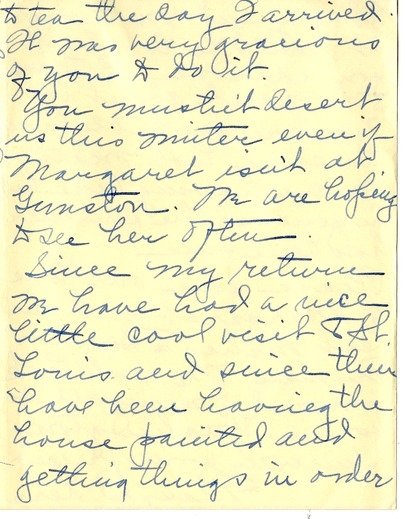 to tea the day I arrived.
It was very gracious
of you to do it.
You mustn't desert
us this winter even if
Margaret isn't at
Gunston. We are hoping
to see her often.
Since my return
we have had a nice
little cool visit to St.
Louis and since then
have been having the
house painted and
getting things in order